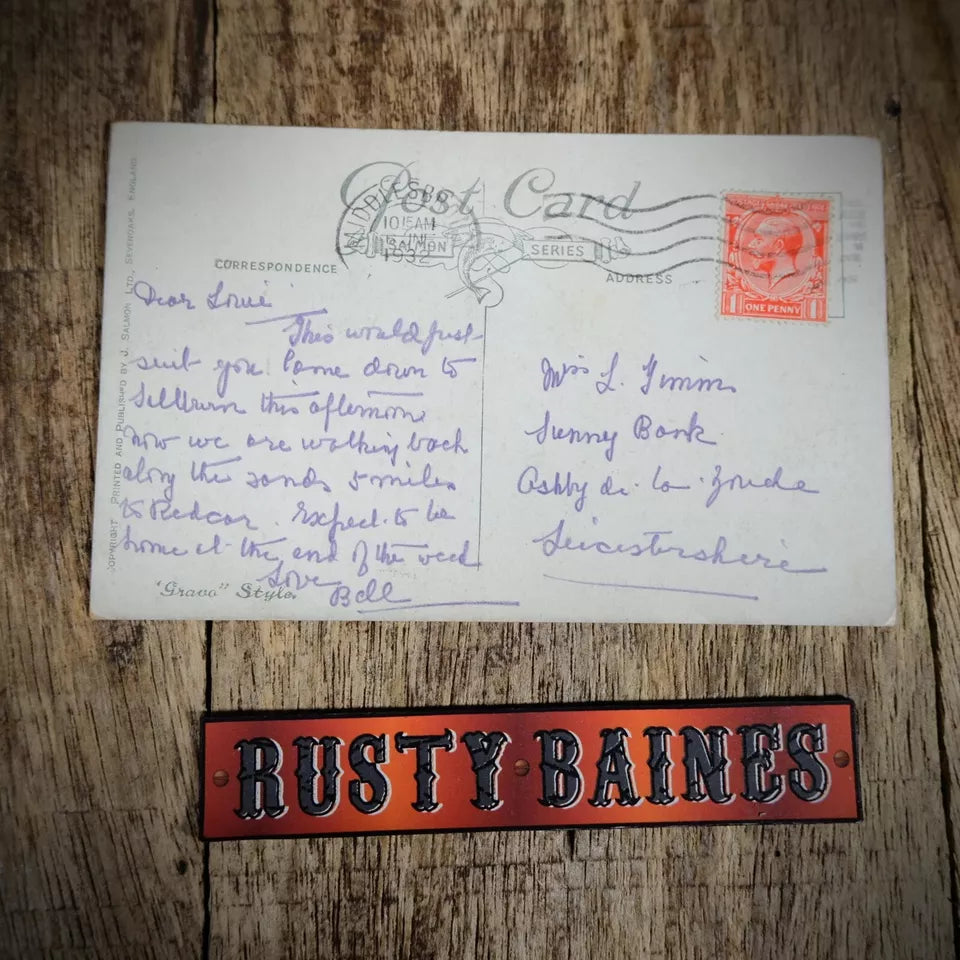 Post Card
MIDDLESBRO
10 15 AM
JNE
1932
SALMON SERIES
CORRESPONDENCE
ADDRESS
ONE PENNY
COPYRIGHT PRINTED AND PUBLISHED BY J. SALMON LTD., SEVENOAKS, ENGLAND
Dear Louie
This would just
suit you. Came down to
this afternoon
now we are walking back
along the sands 5 miles
to Redcar. Expect to be
home at the end of the week
Love
Bell
"Gravo" Style.
Miss L. Timms
Sunny Bank
Ashby de-la-Zouche
Leicestershire
RUSTY BAINES